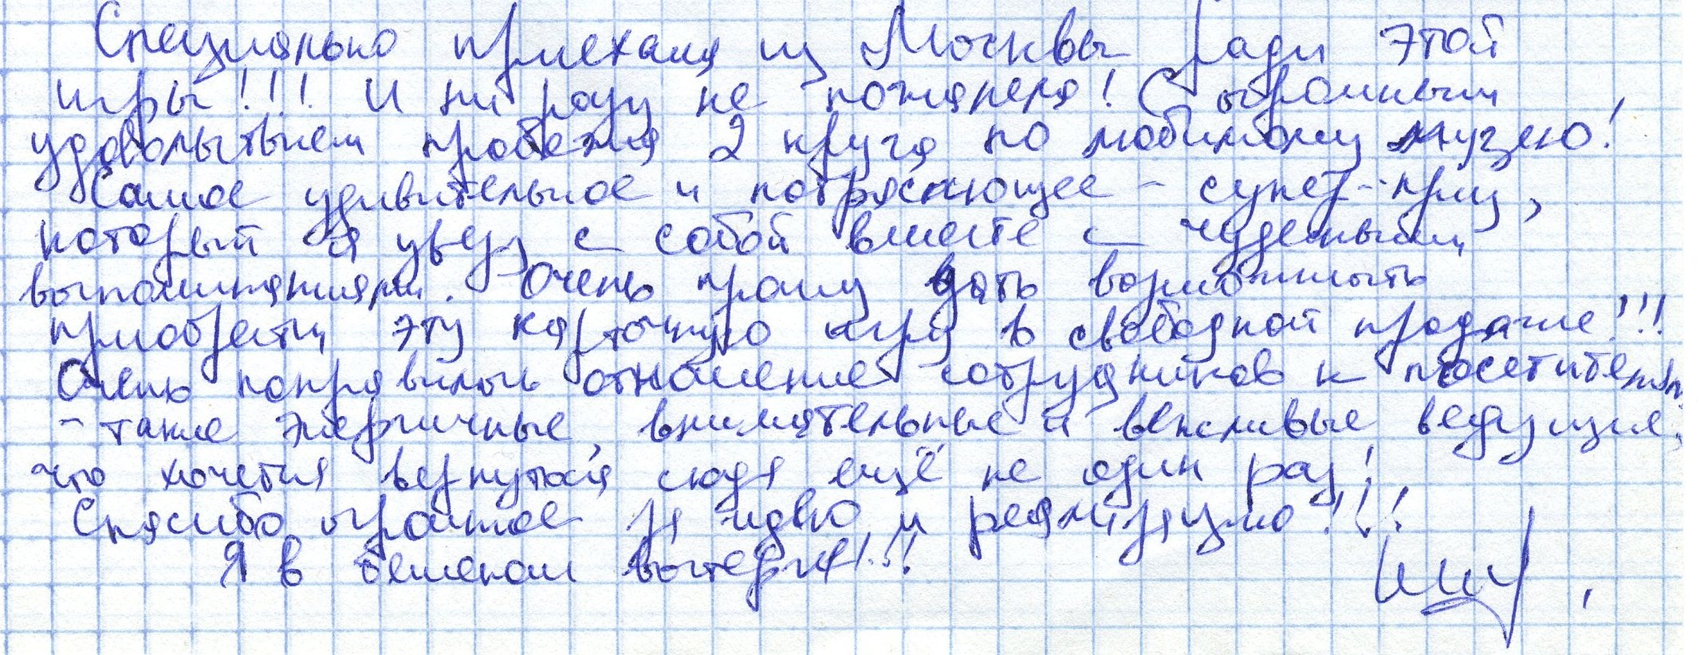 Специально приехала из Москвы ради этой
игры!!! И ни разу не пожалела! С огромным
удовольствием пробежала 2 круга по любимому музею!
Самое удивительное и потрясающее - супер-приз,
который я увезу с собой вместе с чудесными
воспоминаниями. Очень прошу дать возможность
приобрести эту карточную игру в свободной продаже!!!
Очень понравилось отношение сотрудников к посетителям
- такие энергичные, внимательные и вежливые ведущие,
что хочется вернуться сюда ещё не один раз!
Спасибо огромное за идею и реализацию!!!
Я в бешеном восторге!!!